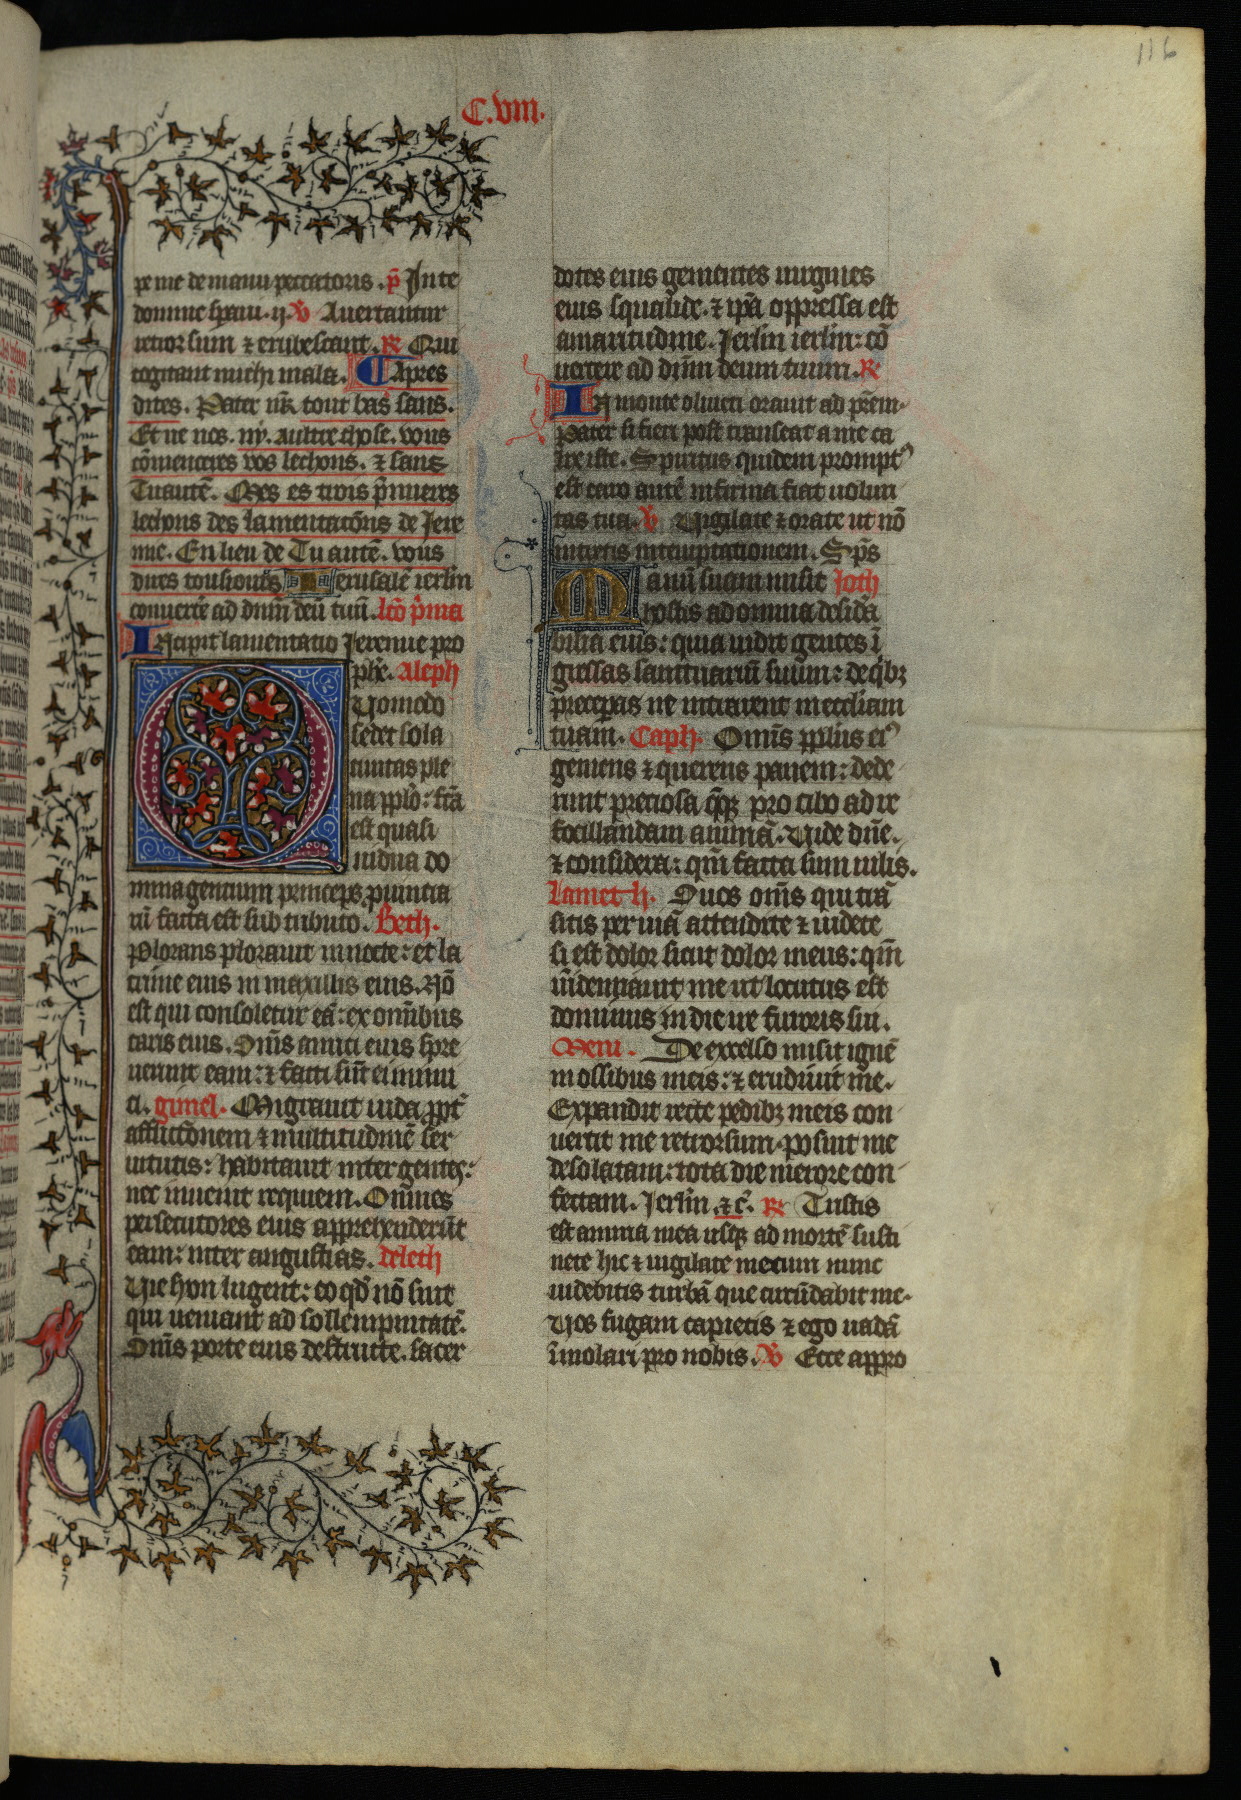 116
C.viii.
pe me de manu peccatoris. p̄ In te
domine sperau. ij. V̄ Auertantur
retrorsum ⁊ erubescant. R̄ Qui
cogitant michi mala. Capres
dites. Pater nr̄. tout bas sans.
Et ne nos. ny. aultre chose. vous
cōmenceres vos lechons. ⁊ sans
Tu autē. Mes es trois p̄mieres
lechons des lamentacōns de Jere
mie. En lieu de Tu autē. vous
dires tousiours Jerusalē ierl'm
conuertē ad dnm̄ deū tuū. lcō p̄ma
Incipit lamentatio Jeremie pro
phe. Aleph
Quomodo
sedet sola
ciuitas ple
na pplo: fcā
est quasi
uidua do
mina gentium princeps prouincia
rū facta est sub tributo. Beth.
Plorans plorauit in nocte: et la
crime eius in maxillis eius. Nō
est qui consoletur eā: ex omībus
caris eius. Om̄s amici eius spre
uerunt eam: ⁊ facti sūt ei inimi
ci. gimel. Migrauit iuda ppt̄
afflictiōnem ⁊ multitudinē ser
uitutis: habitauit inter gentes:
nec inuenit requiem. Om̄nes
persecutores eius apprehenderūt
eam: inter angustias. deleth
Vie syon lugent: eo qd̄ nō sint
qui ueniant ad sollempnitatē.
Om̄s porte eius destructe. sacer
dotes eius gementes uirgines
eius squalide. ⁊ ip̄a oppressa est
amaritudine. Jerl'm ierl'm: cō
uertere ad dn̄m deum tuum. R̄
In monte oliueti orauit ad pr̄em.
Pater si fieri post transeat a me ca
lix iste. Spiritus quidem prompt᾿
est caro autē infirma fiat uolun
tas tua. V̄ Vigilate ⁊ orate ut nō
intretis in temptationem. Sp̄s
Manū suam misit Joth
hostis ad omnia desidā
bilia eius: quia uidit gentes ī
gressas sanctuariū suum: de qͥbꝫ
preceperas ne intrarent in ecclĩam
tuam. Caph. Om̄is pplus ei᾿
gemens ⁊ querens panem: dede
runt preciosa q̄qꝫ pro cibo ad re
focillandam animā. Vide dn̄e.
⁊ considera: qm̄ facta sum uilis.
Lameth. O uos om̄s qui trā
sitis per uiā attendite ⁊ uidete
si est dolor sicut dolor meus: qm̄
uīdemiauit me ut locutus est
dominus in die ire furoris sui.
Mem. De excelso misit ignē
in ossibus meis: ⁊ erudiuit me.
Expandit rete pedibꝫ meis con
uertit me retrorsum. posuit me
desolatam: tota die merore con
fectam. Jerl'm ⁊c̄. R̄ Tristis
est anima mea usqꝫ ad mortē susti
nete hic ⁊ uigilate mecum nunc
uidebitis turbā que circūdabit me.
Vos fugam capietis ⁊ ego uadā
īmolari pro uobis. V̄ Ecce appro